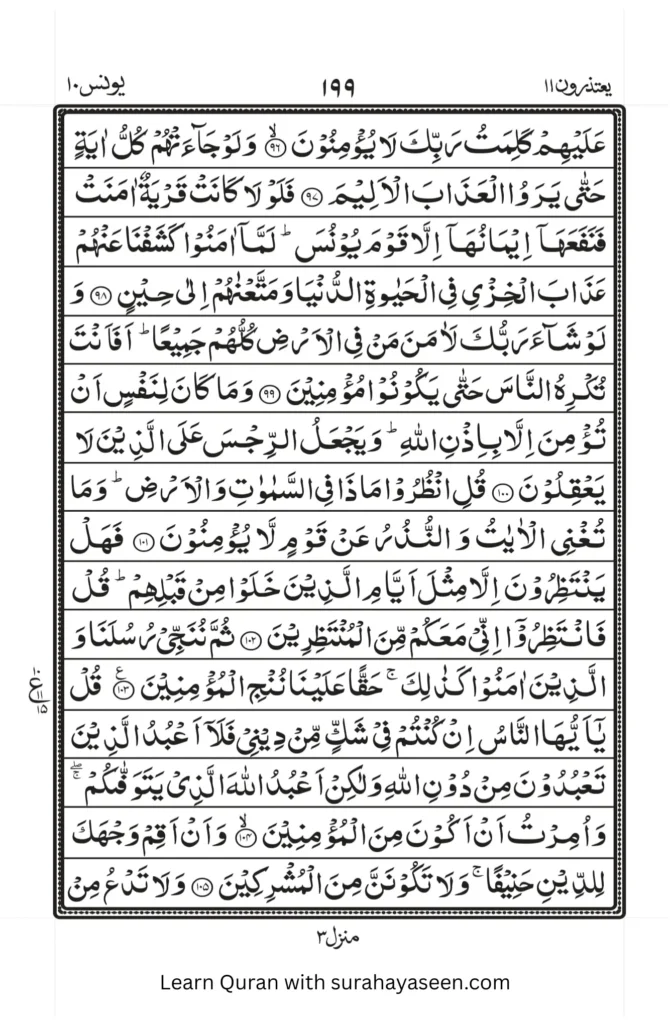 یعتذرون ۱۱ ۱۹۹ یونس ۱۰
عَلَيْهِمْ كَلِمَتُ رَبِّكَ لَا يُؤْمِنُوْنَ ۙ﴿۹۶﴾ وَلَوْ جَآءَتْهُمْ كُلُّ اٰيَةٍ
حَتّٰى يَرَوُا الْعَذَابَ الْاَلِيْمَ ﴿۹۷﴾ فَلَوْ لَا كَانَتْ قَرْيَةٌ اٰمَنَتْ
فَنَفَعَهَاۤ اِيْمَانُهَاۤ اِلَّا قَوْمَ يُوْنُسَ ؕ لَمَّاۤ اٰمَنُوْا كَشَفْنَا عَنْهُمْ
عَذَابَ الْخِزْىِ فِى الْحَيٰوةِ الدُّنْيَا وَمَتَّعْنٰهُمْ اِلٰى حِيْنٍ ﴿۹۸﴾ وَ
لَوْ شَآءَ رَبُّكَ لَاٰمَنَ مَنْ فِى الْاَرْضِ كُلُّهُمْ جَمِيْعًا ؕ اَفَاَنْتَ
تُكْرِهُ النَّاسَ حَتّٰى يَكُوْنُوْا مُؤْمِنِيْنَ ﴿۹۹﴾ وَمَا كَانَ لِنَفْسٍ اَنْ
تُؤْمِنَ اِلَّا بِاِذْنِ اللّٰهِ ؕ وَيَجْعَلُ الرِّجْسَ عَلَى الَّذِيْنَ لَا
يَعْقِلُوْنَ ﴿۱۰۰﴾ قُلِ انْظُرُوْا مَاذَا فِى السَّمٰوٰتِ وَالْاَرْضِ ؕ وَمَا
تُغْنِى الْاٰيٰتُ وَالنُّذُرُ عَنْ قَوْمٍ لَّا يُؤْمِنُوْنَ ﴿۱۰۱﴾ فَهَلْ
يَنْتَظِرُوْنَ اِلَّا مِثْلَ اَيَّامِ الَّذِيْنَ خَلَوْا مِنْ قَبْلِهِمْ ؕ قُلْ
فَانْتَظِرُوْۤا اِنِّىْ مَعَكُمْ مِّنَ الْمُنْتَظِرِيْنَ ﴿۱۰۲﴾ ثُمَّ نُنَجِّىْ رُسُلَنَا وَ
الَّذِيْنَ اٰمَنُوْا كَذٰلِكَ ۚ حَقًّا عَلَيْنَا نُنْجِ الْمُؤْمِنِيْنَ ﴿۱۰۳﴾ ع قُلْ
يٰۤاَيُّهَا النَّاسُ اِنْ كُنْتُمْ فِىْ شَكٍّ مِّنْ دِيْنِىْ فَلَاۤ اَعْبُدُ الَّذِيْنَ
تَعْبُدُوْنَ مِنْ دُوْنِ اللّٰهِ وَلٰكِنْ اَعْبُدُ اللّٰهَ الَّذِىْ يَتَوَفّٰٮكُمْ ۖۚ
وَاُمِرْتُ اَنْ اَكُوْنَ مِنَ الْمُؤْمِنِيْنَ ۙ﴿۱۰۴﴾ وَاَنْ اَقِمْ وَجْهَكَ
لِلدِّيْنِ حَنِيْفًا ۚ وَلَا تَكُوْنَنَّ مِنَ الْمُشْرِكِيْنَ ﴿۱۰۵﴾ وَلَا تَدْعُ مِنْ
۱۰ ع ۱۱ ۱۵
منزل ۳
Learn Quran with surahayaseen.com